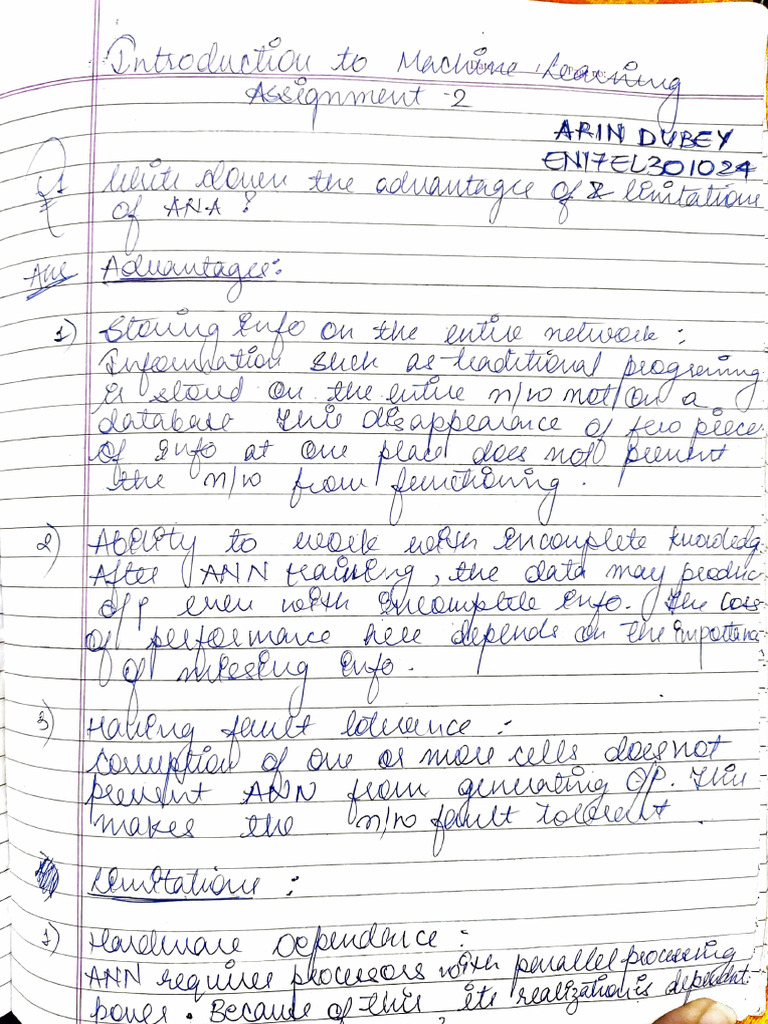 Introduction to Machine Learning
Assignment -2
ARIN DUBEY
EN17EL301024
Q1 Write down the advantages of & limitations
of ANA?
Ans Advantages:
1) Storing Info on the entire network:
Information such as traditional programing
is stored on the entire n/w not on a
database this disappearance of few piece
of Info at one place does not prevent
the n/w from functioning.
2) Ability to work with incomplete knowledg
After ANN training, the data may produc
o/p even with incomplete info. The loss
of performance here depends on the importanc
of missing info.
3) Having fault tolerance:
Corruption of one or more cells does not
prevent ANN from generating O/P. This
makes the n/w fault tolerent.
Limitations:
1) Hardware Dependence:
ANN requires processors with parallel processing
power. Because of this its realization is dependent